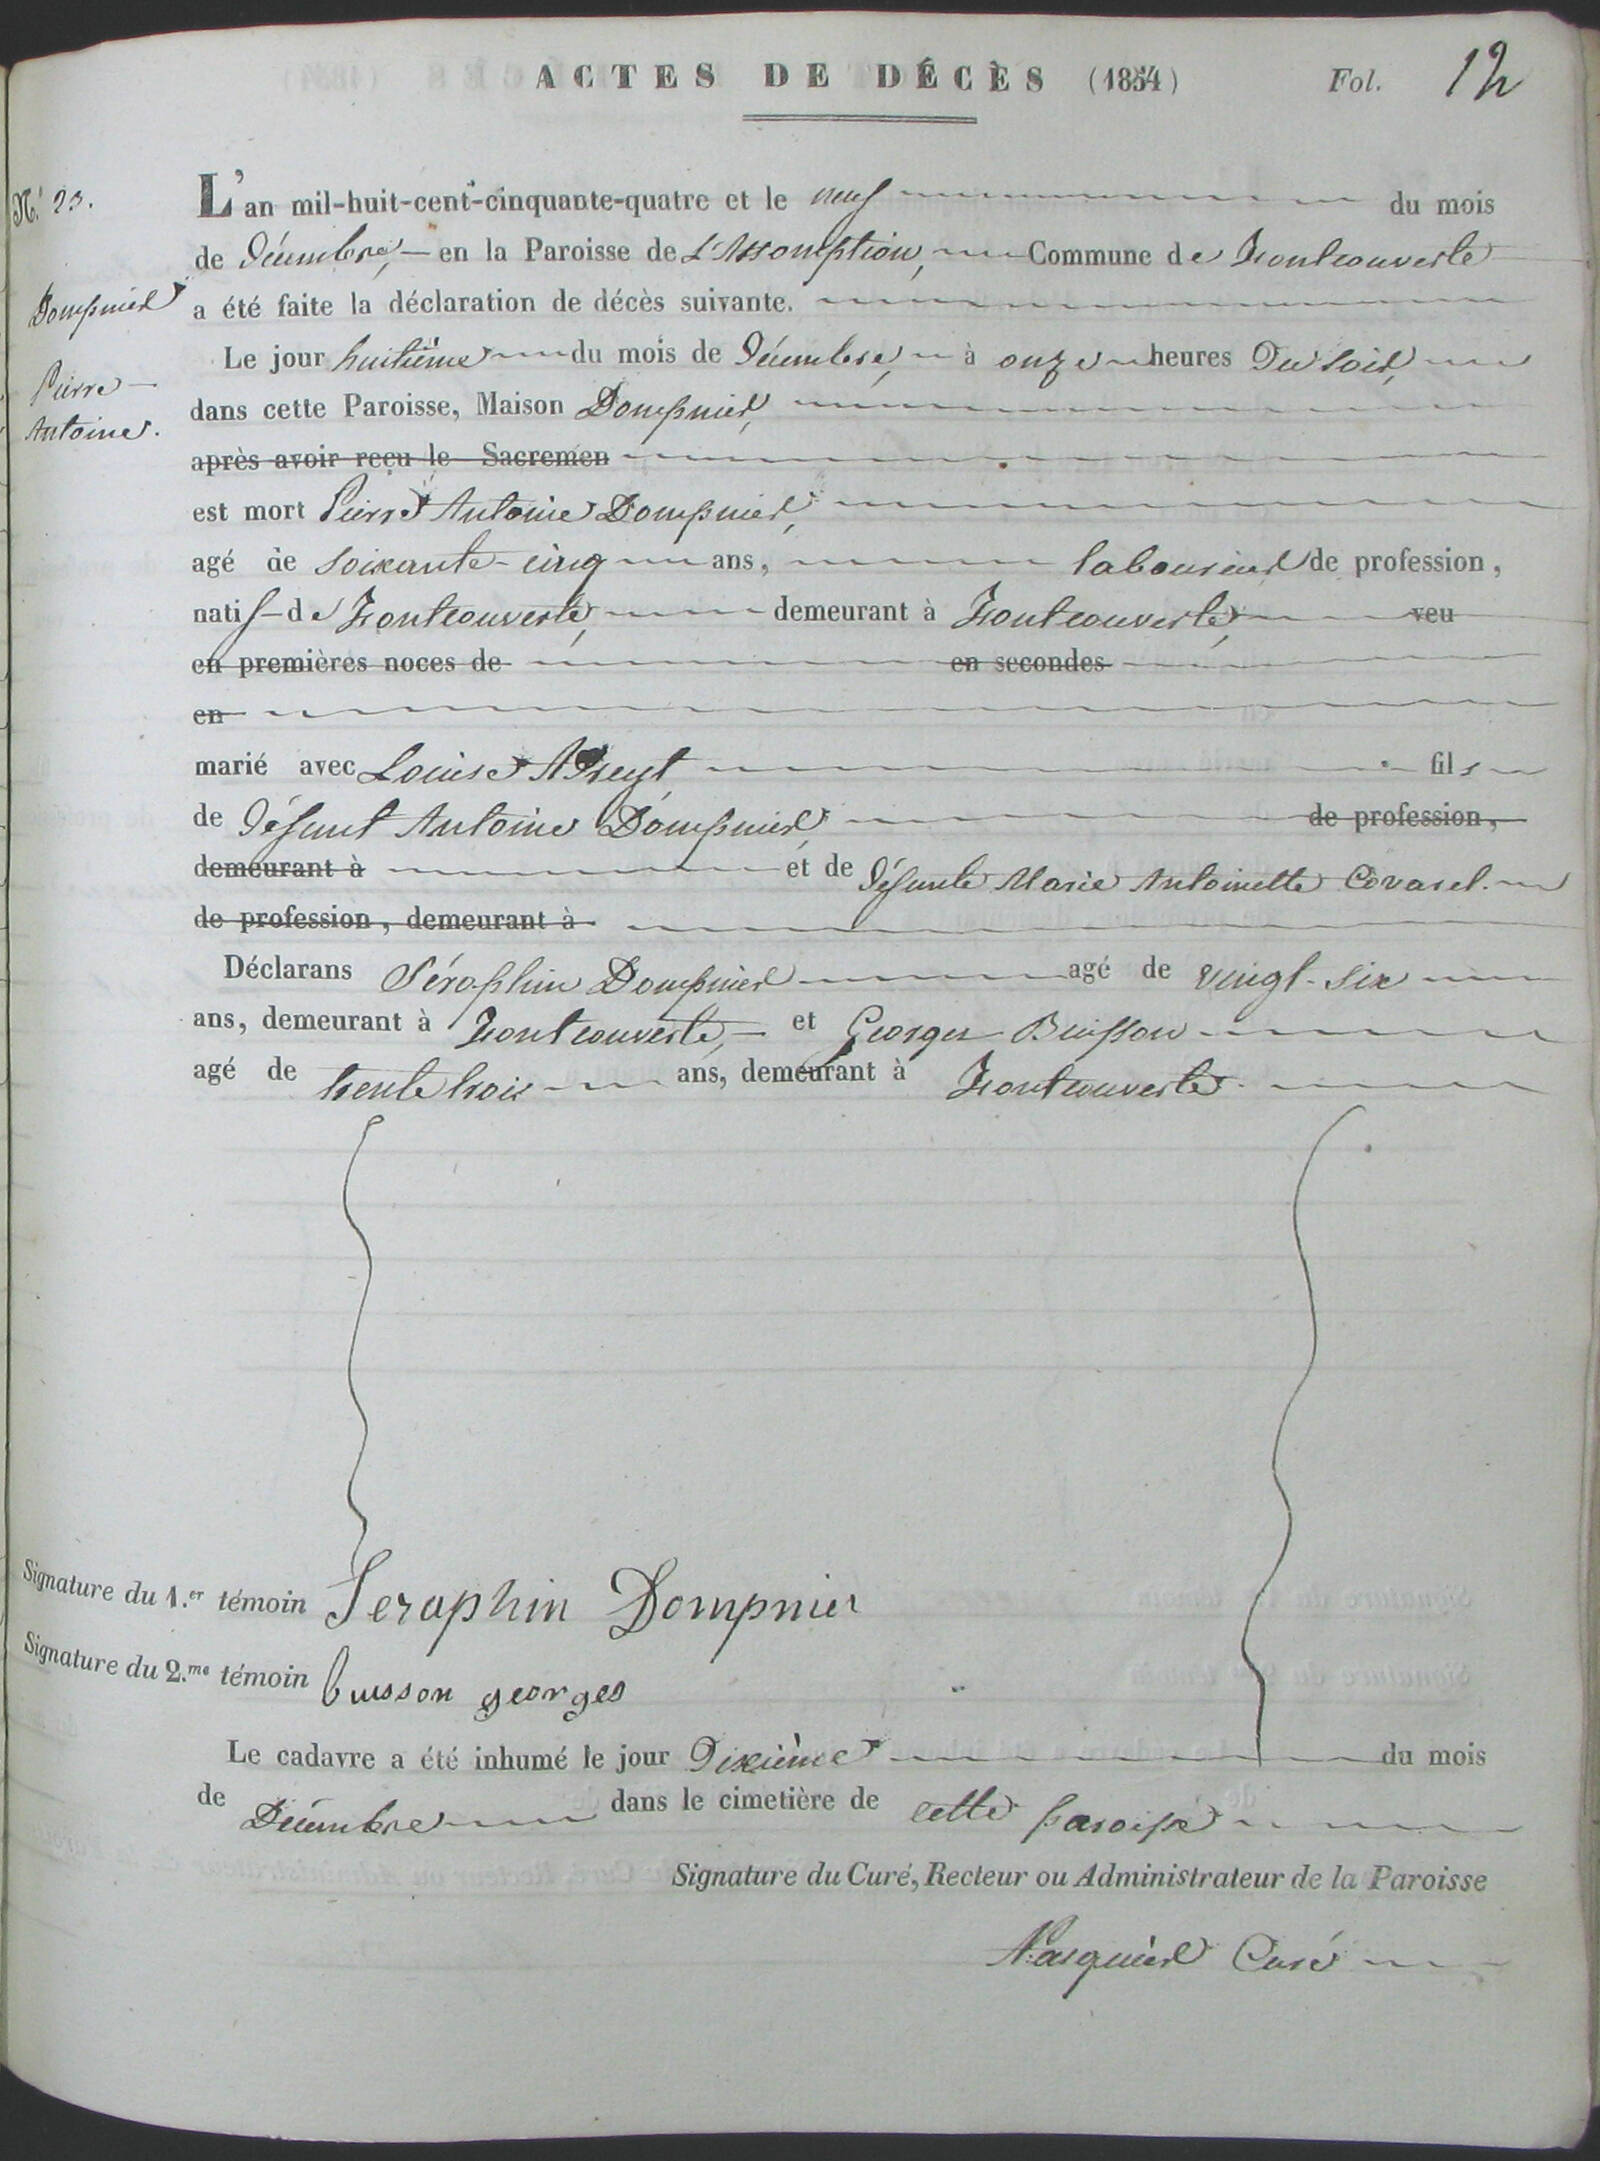 ACTES DE DÉCÈS (1854) Fol. 12
N.º 23.
L'an mil-huit-cent-cinquante-quatre et le neuf du mois
de Décembre, en la Paroisse de L'Assomption, Commune de Fontcouverte
Dompnier
a été faite la déclaration de décès suivante.
Le jour huitième du mois de Décembre, à onze heures Du soir,
Pierre
dans cette Paroisse, Maison Dompnier,
Antoine.
après avoir reçu le Sacremen
est mort Pierre Antoine Dompnier,
agé de soixante-cinq ans, laboureur de profession,
natif de Fontcouverte, demeurant à Fontcouverte, veu
en premières noces de en secondes
en
marié avec Louise fils
de Défunt Antoine Dompnier, de profession,
demeurant à et de Défunte Marie Antoinette Covarel.
de profession, demeurant à
Déclarans Séraphin Dompnier agé de vingt-six
ans, demeurant à Fontcouverte, et Georges Buisson
agé de trente trois ans, demeurant à Fontcouverte.
Signature du 1.er témoin Seraphin Dompnier
Signature du 2.me témoin buisson georges
Le cadavre a été inhumé le jour Dixième du mois
de Décembre dans le cimetière de cette paroisse
Signature du Curé, Recteur ou Administrateur de la Paroisse
Curé